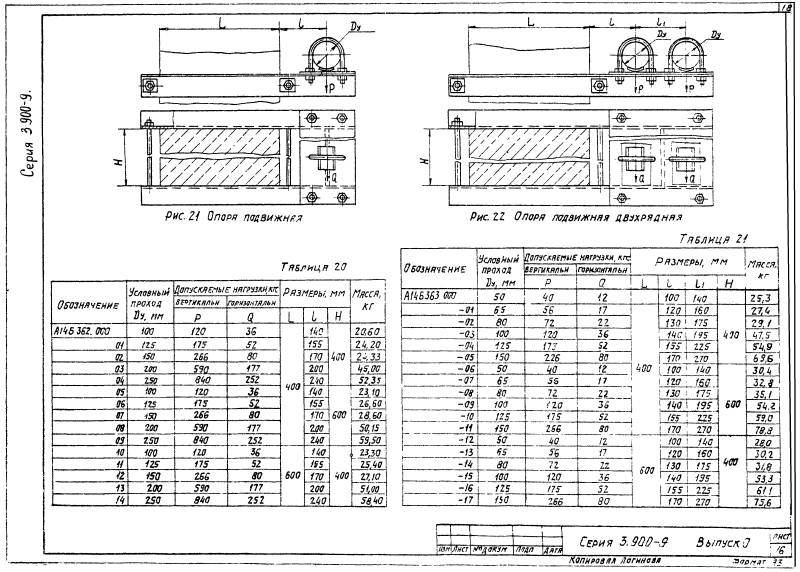 18
Серия 3.900-9.
L l Dу
P
H
Q
Рис. 21 Опора подвижная
L l l1
Dу Dу
P P
H
Q Q
Рис. 22 Опора подвижная двухрядная
Таблица 20
Обозначение Условный проход Dу, мм Допускаемые нагрузки, кгс Размеры, мм Масса, кг
вертикальн горизонтальн
P Q L l H
А14Б362.000 100 120 36 400 140 400 20,60
01 125 175 52 155 24,20
02 150 266 80 170 24,33
03 200 590 177 200 45,00
04 250 840 252 240 52,35
05 100 120 36 140 600 23,10
06 125 175 52 155 26,60
07 150 266 80 170 28,60
08 200 590 177 200 50,15
09 250 840 252 240 59,50
10 100 120 36 600 140 400 23,30
11 125 175 52 155 25,40
12 150 266 80 170 27,10
13 200 590 177 200 51,00
14 250 840 252 240 58,40
Таблица 21
Обозначение Условный проход Dу, мм Допускаемые нагрузки, кгс Размеры, мм Масса, кг
вертикальн горизонтальн
P Q L l l1 H
А14Б363 000 50 40 12 400 100 140 400 25,3
-01 65 56 17 120 160 27,4
-02 80 72 22 130 175 29,1
-03 100 120 36 140 195 47,5
-04 125 175 52 155 225 54,9
-05 150 226 80 170 270 65,6
-06 50 40 12 100 140 600 30,4
-07 65 56 17 120 160 32,8
-08 80 72 22 130 175 35,1
-09 100 120 36 140 195 54,2
-10 125 175 52 155 225 59,0
-11 150 266 80 170 270 78,8
-12 50 40 12 600 100 140 400 28,0
-13 65 56 17 120 160 30,2
-14 80 72 22 130 175 31,8
-15 100 120 36 140 195 53,3
-16 125 175 52 155 225 61,1
-17 150 266 80 170 270 75,6
Изм Лист № докум Подп Дата
Серия 3.900-9 Выпуск 0
Лист
16
Копировал Логинова Формат